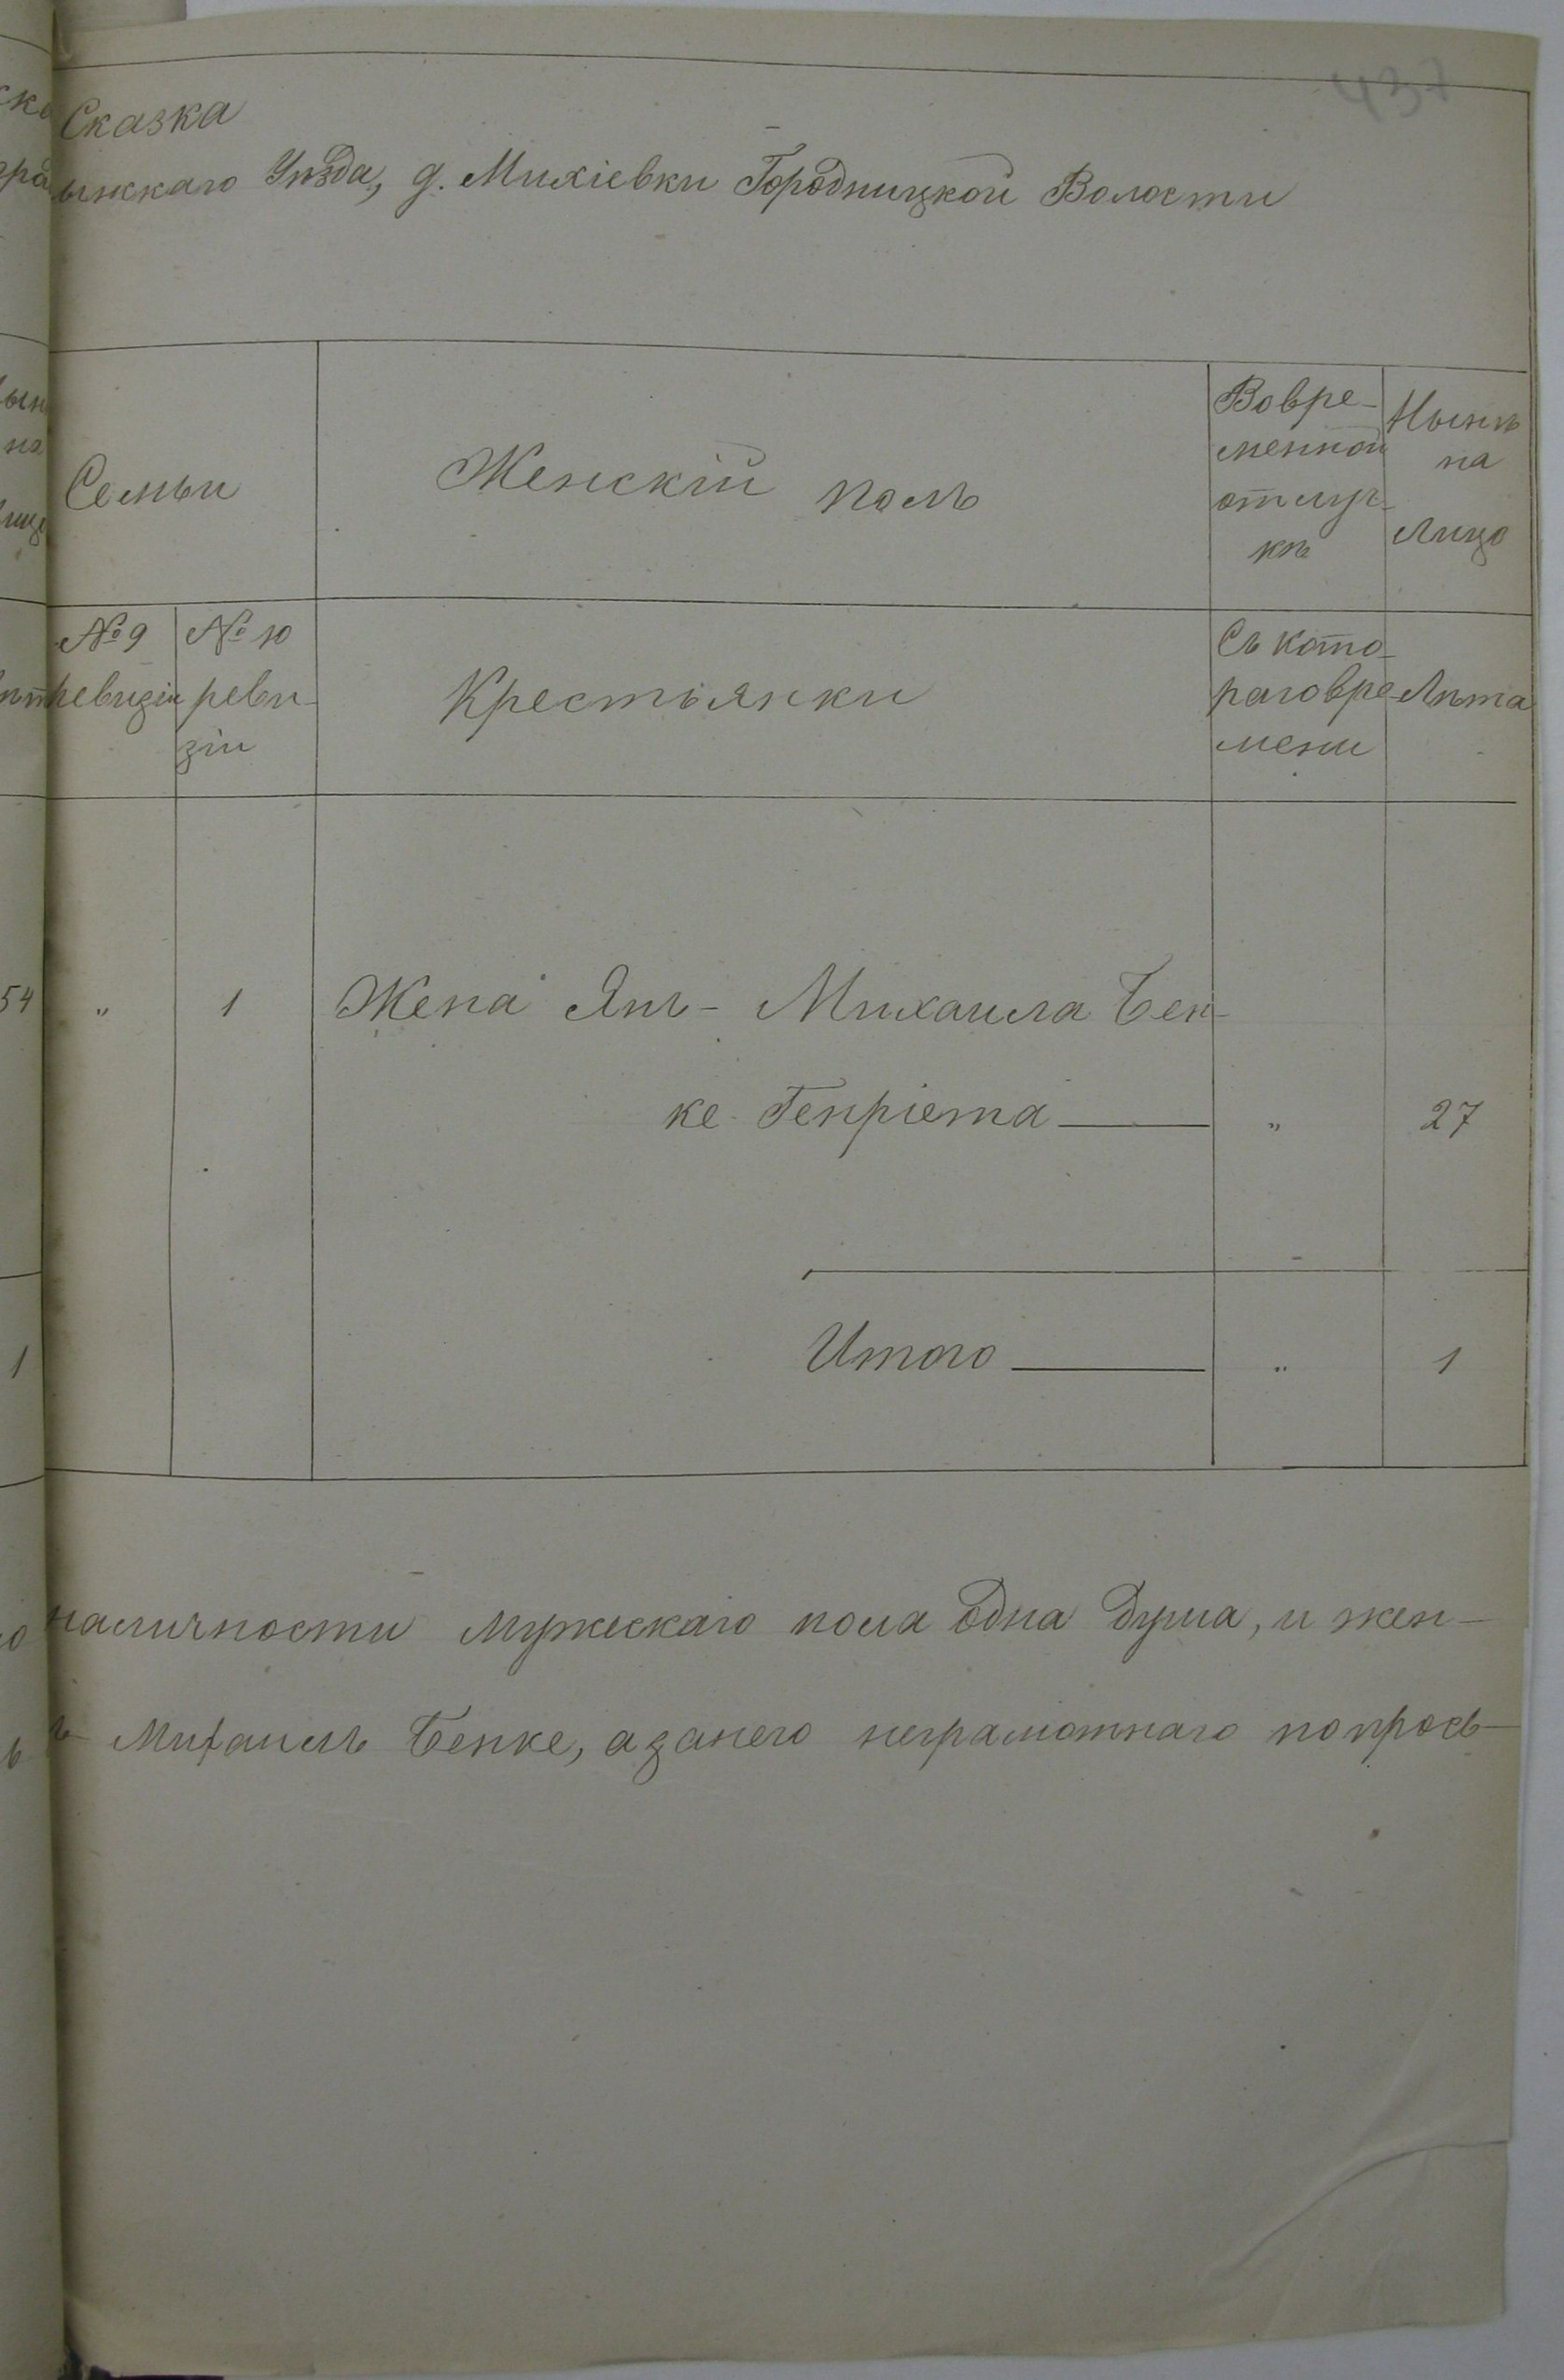 437
Сказка
ынскаго Уѣзда, д. Михіевки Городницкой Волости
Семьи
Женскій полъ
Вовре-
менной
отлуч-
кѣ
Нынѣ
на
Лицо
№ 9
ревизіи
№ 10
реви-
зіи
Крестьянки
Съ кото-
раго вре-
мени
Лѣта
54 " 1 Жена Янъ-Михаила Бен-
ке Генріета — " 27
1 Итого — " 1
наличности мужескаго пола одна душа, и жен-
ъ Михаилъ Бенке, а занего неграмотнаго попрось-